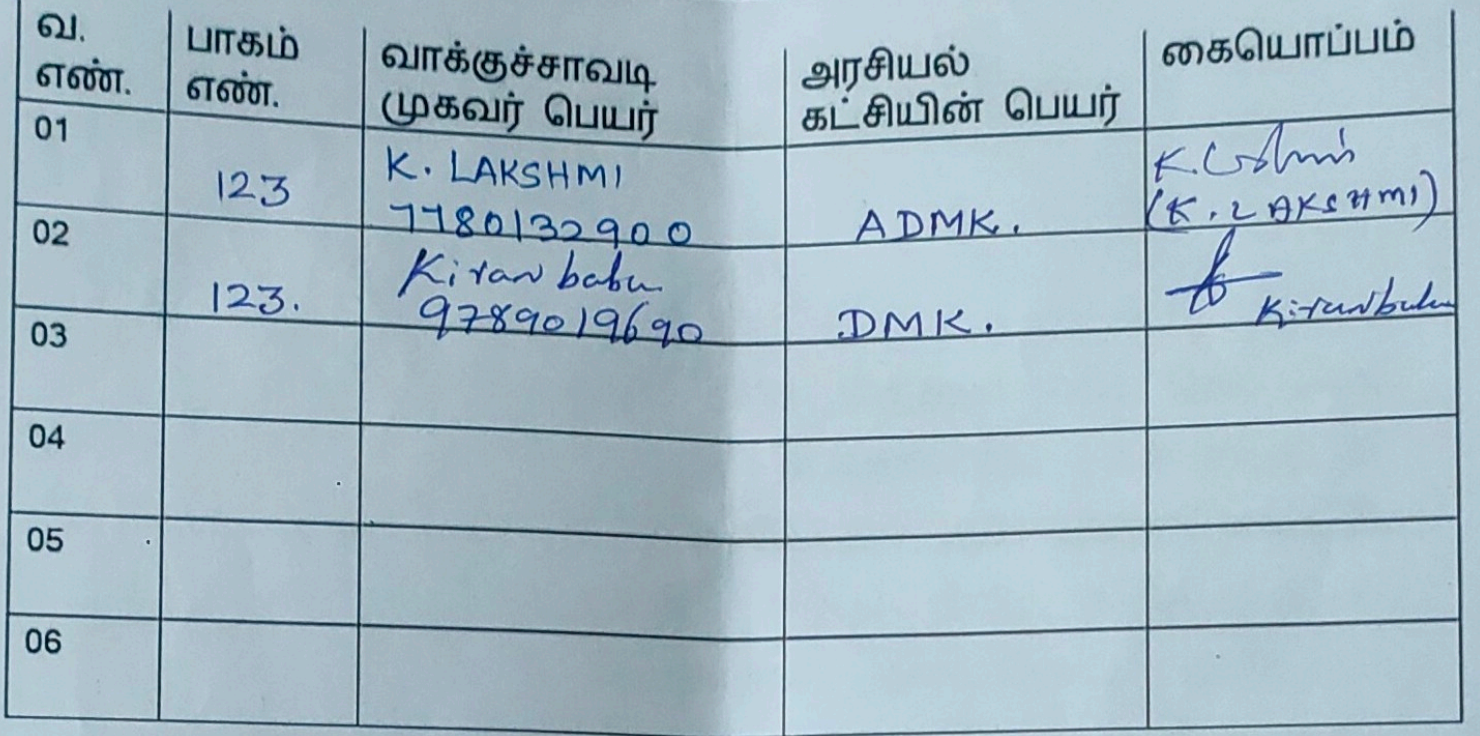 வ. எண்.
பாகம் எண்.
வாக்குச்சாவடி முகவர் பெயர்
அரசியல் கட்சியின் பெயர்
கையொப்பம்
01
123
K. LAKSHMI
7780132900
ADMK.
K.
(K. LAKSHMI)
02
123.
Kiran babu
9789019690
DMK.
Kiranbabu
03
04
05
06